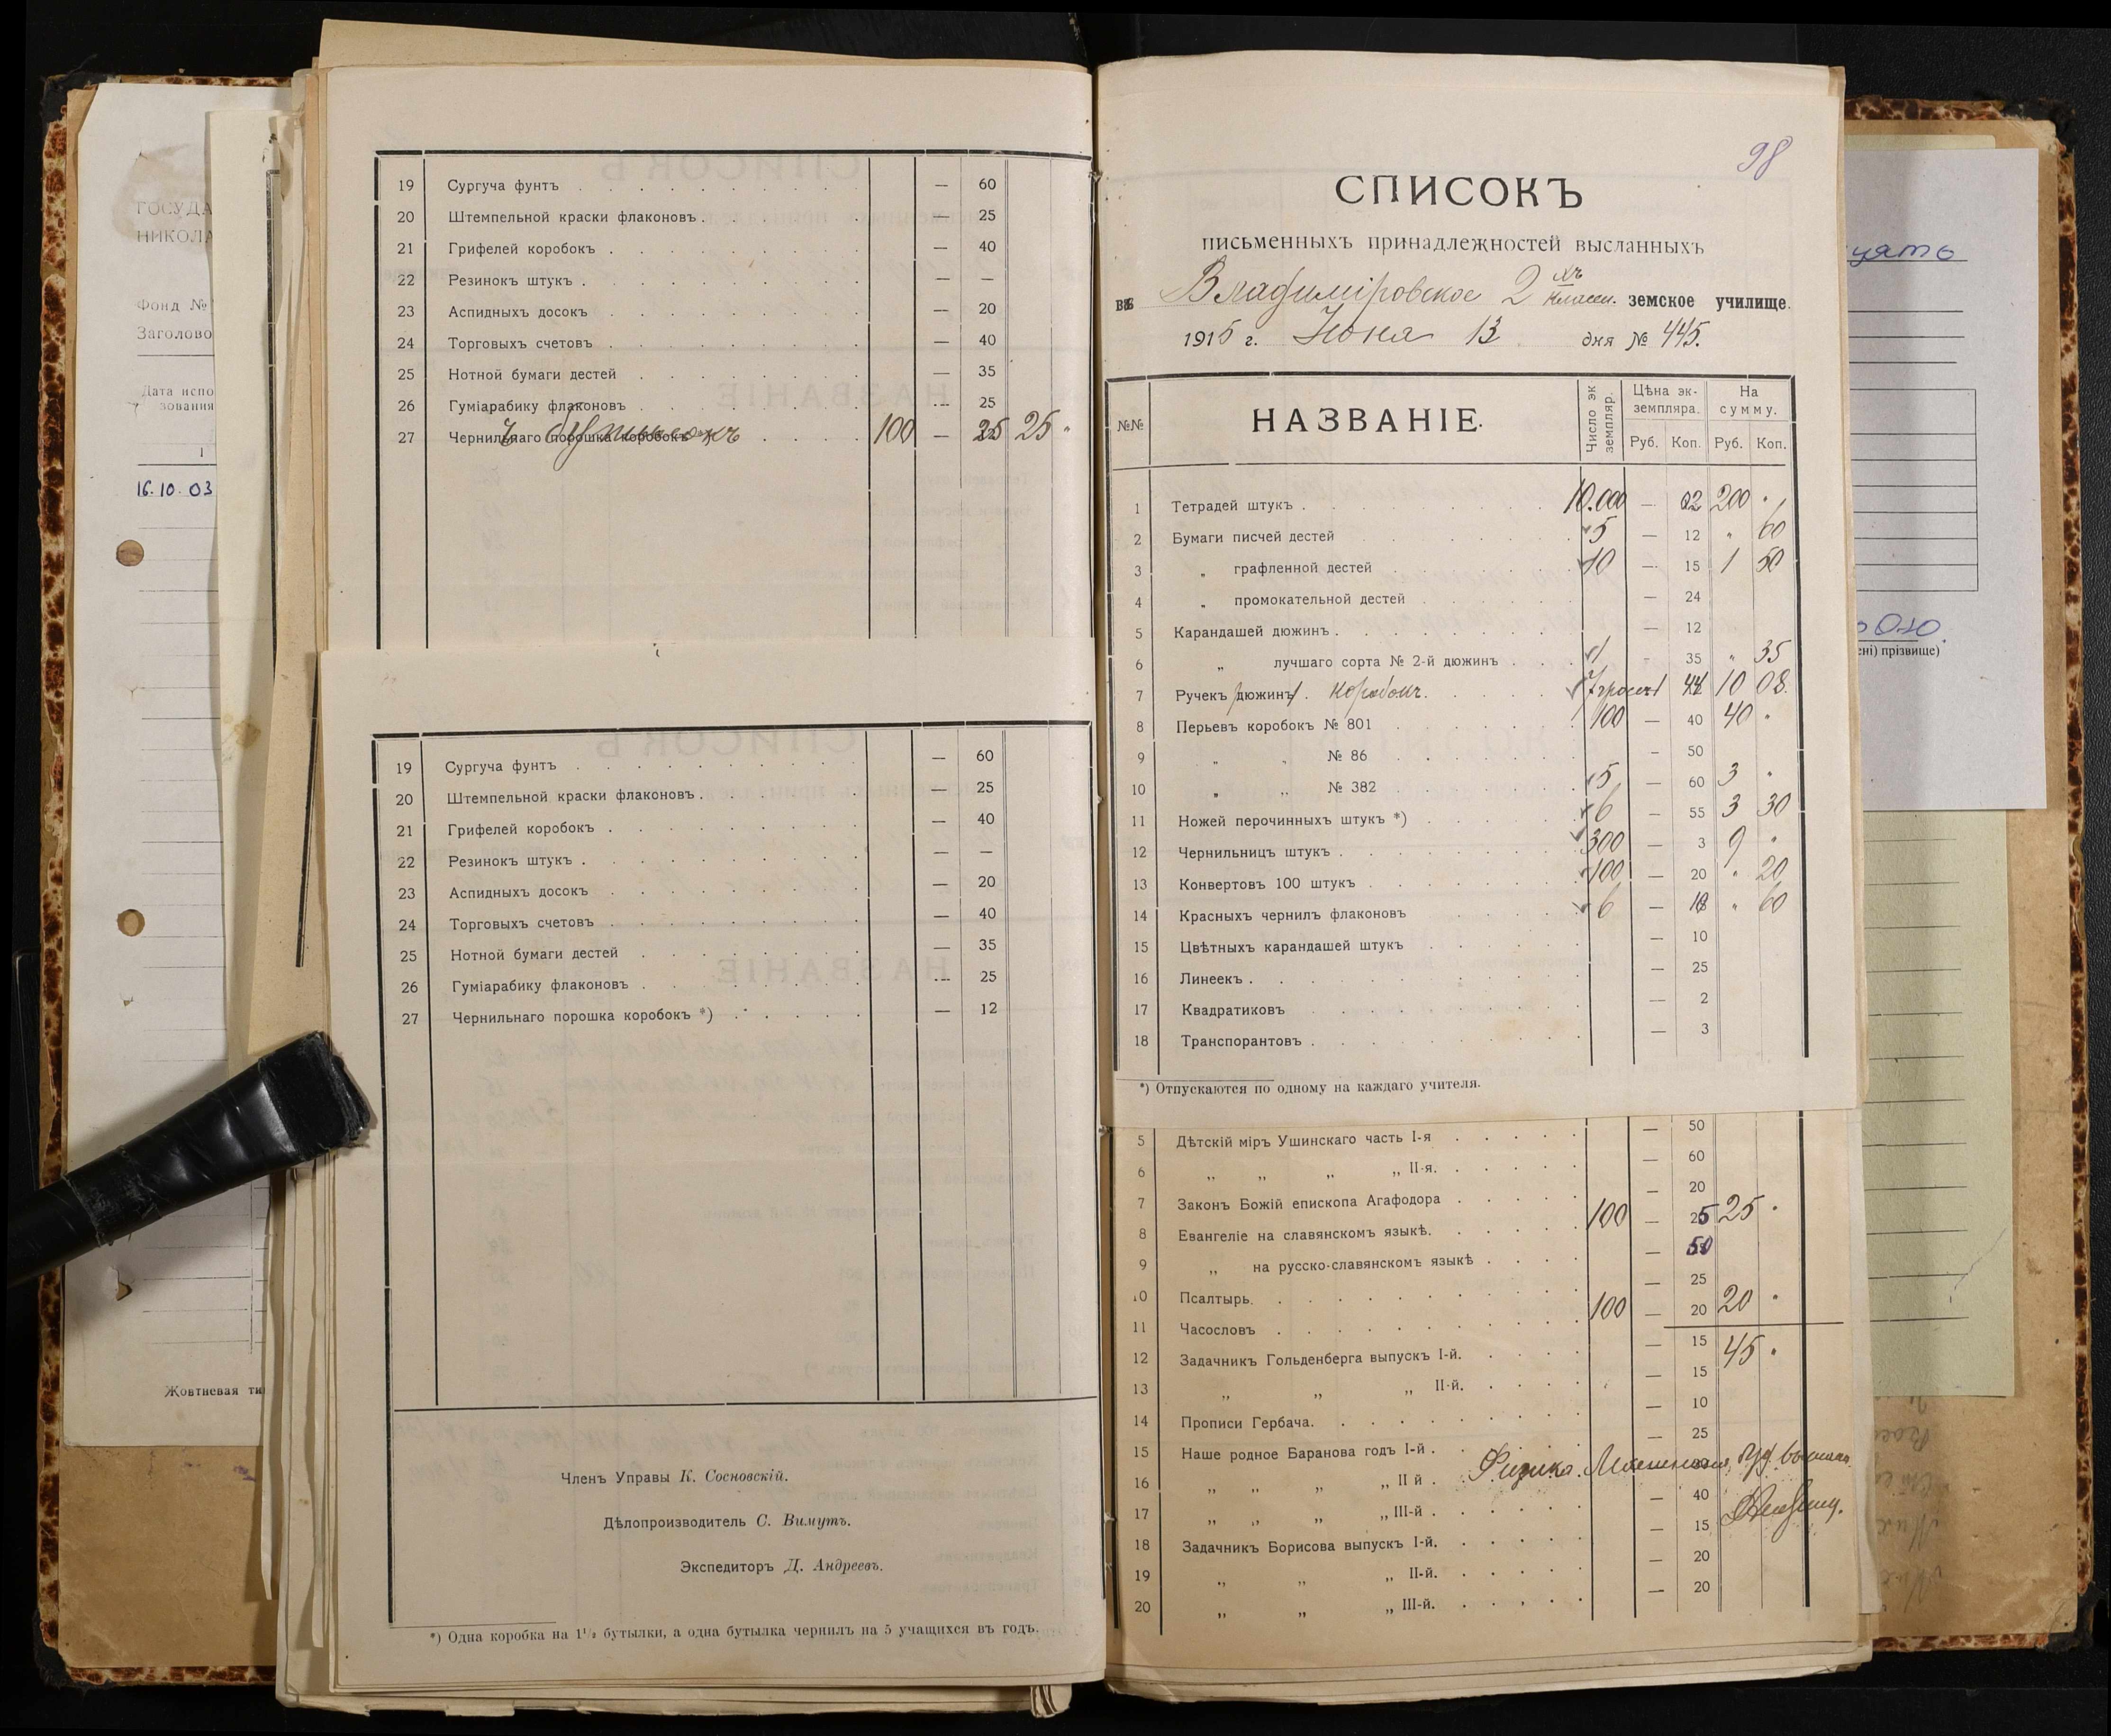 19 Сургуча фунтъ — 60
20 Штемпельной краски флаконовъ — 25
21 Грифелей коробокъ — 40
22 Резинокъ штукъ — —
23 Аспидныхъ досокъ — 20
24 Торговыхъ счетовъ — 40
25 Нотной бумаги дестей — 35
26 Гуміарабику флаконовъ — 25
27 Чернильнаго порошка коробокъ бутылокъ 100 — 25 25 "
19 Сургуча фунтъ — 60
20 Штемпельной краски флаконовъ — 25
21 Грифелей коробокъ — 40
22 Резинокъ штукъ — —
23 Аспидныхъ досокъ — 20
24 Торговыхъ счетовъ — 40
25 Нотной бумаги дестей — 35
26 Гуміарабику флаконовъ — 25
27 Чернильнаго порошка коробокъ *) — 12
Членъ Управы К. Сосновскій.
Дѣлопроизводитель С. Вимутъ.
Экспедиторъ Д. Андреевъ.
*) Одна коробка на 1½ бутылки, а одна бутылка чернилъ на 5 учащихся въ годъ.
98
СПИСОКЪ
письменныхъ принадлежностей высланныхъ
въ Владиміровское 2 хъ классн. земское училище.
1915 г. Іюня 13 дня № 445.
№№ НАЗВАНІЕ. Число экземпляр. Цѣна экземпляра. На сумму.
Руб. Коп. Руб. Коп.
1 Тетрадей штукъ 10.000 — 02 200 "
2 Бумаги писчей дестей 5 — 12 " 60
3 " графленной дестей 10 — 15 1 50
4 " промокательной дестей — 24
5 Карандашей дюжинъ — 12
6 " лучшаго сорта № 2-й дюжинъ 1 - 35 " 35
7 Ручекъ дюжинъ коробокъ 7 гросъ 1 44 10 08.
8 Перьевъ коробокъ № 801 100 — 40 40 "
9 " " № 86 — 50
10 " " № 382 5 — 60 3 "
11 Ножей перочинныхъ штукъ *) 6 — 55 3 30
12 Чернильницъ штукъ 300 — 3 9 "
13 Конвертовъ 100 штукъ 100 — 20 " 20
14 Красныхъ чернилъ флаконовъ 6 — 10 " 60
15 Цвѣтныхъ карандашей штукъ — 10
16 Линеекъ — 25
17 Квадратиковъ — 2
18 Транспорантовъ — 3
*) Отпускаются по одному на каждаго учителя.
5 Дѣтскій міръ Ушинскаго часть I-я — 50
6 " " " " II-я. — 60
7 Законъ Божій епископа Агафодора — 20
8 Евангеліе на славянскомъ языкѣ. 100 — 25 25 "
9 " на русско-славянскомъ языкѣ — 50
10 Псалтырь. — 25
11 Часословъ 100 — 20 20 "
12 Задачникъ Гольденберга выпускъ I-й. — 15 45 "
13 " " " II-й. — 15
14 Прописи Гербача. — 10
15 Наше родное Баранова годъ I-й — 25
16 " " " " II й
Физика
17 " " " " III-й — 40
18 Задачникъ Борисова выпускъ I-й. — 15
19 " " " II-й. — 20
20 " " " III-й. — 20
ГОСУДА
НИКОЛА
Фонд №
Заголово
Дата испо
зования
1
16.10.03
Жовтневая ти
цять
сні) прізвище)